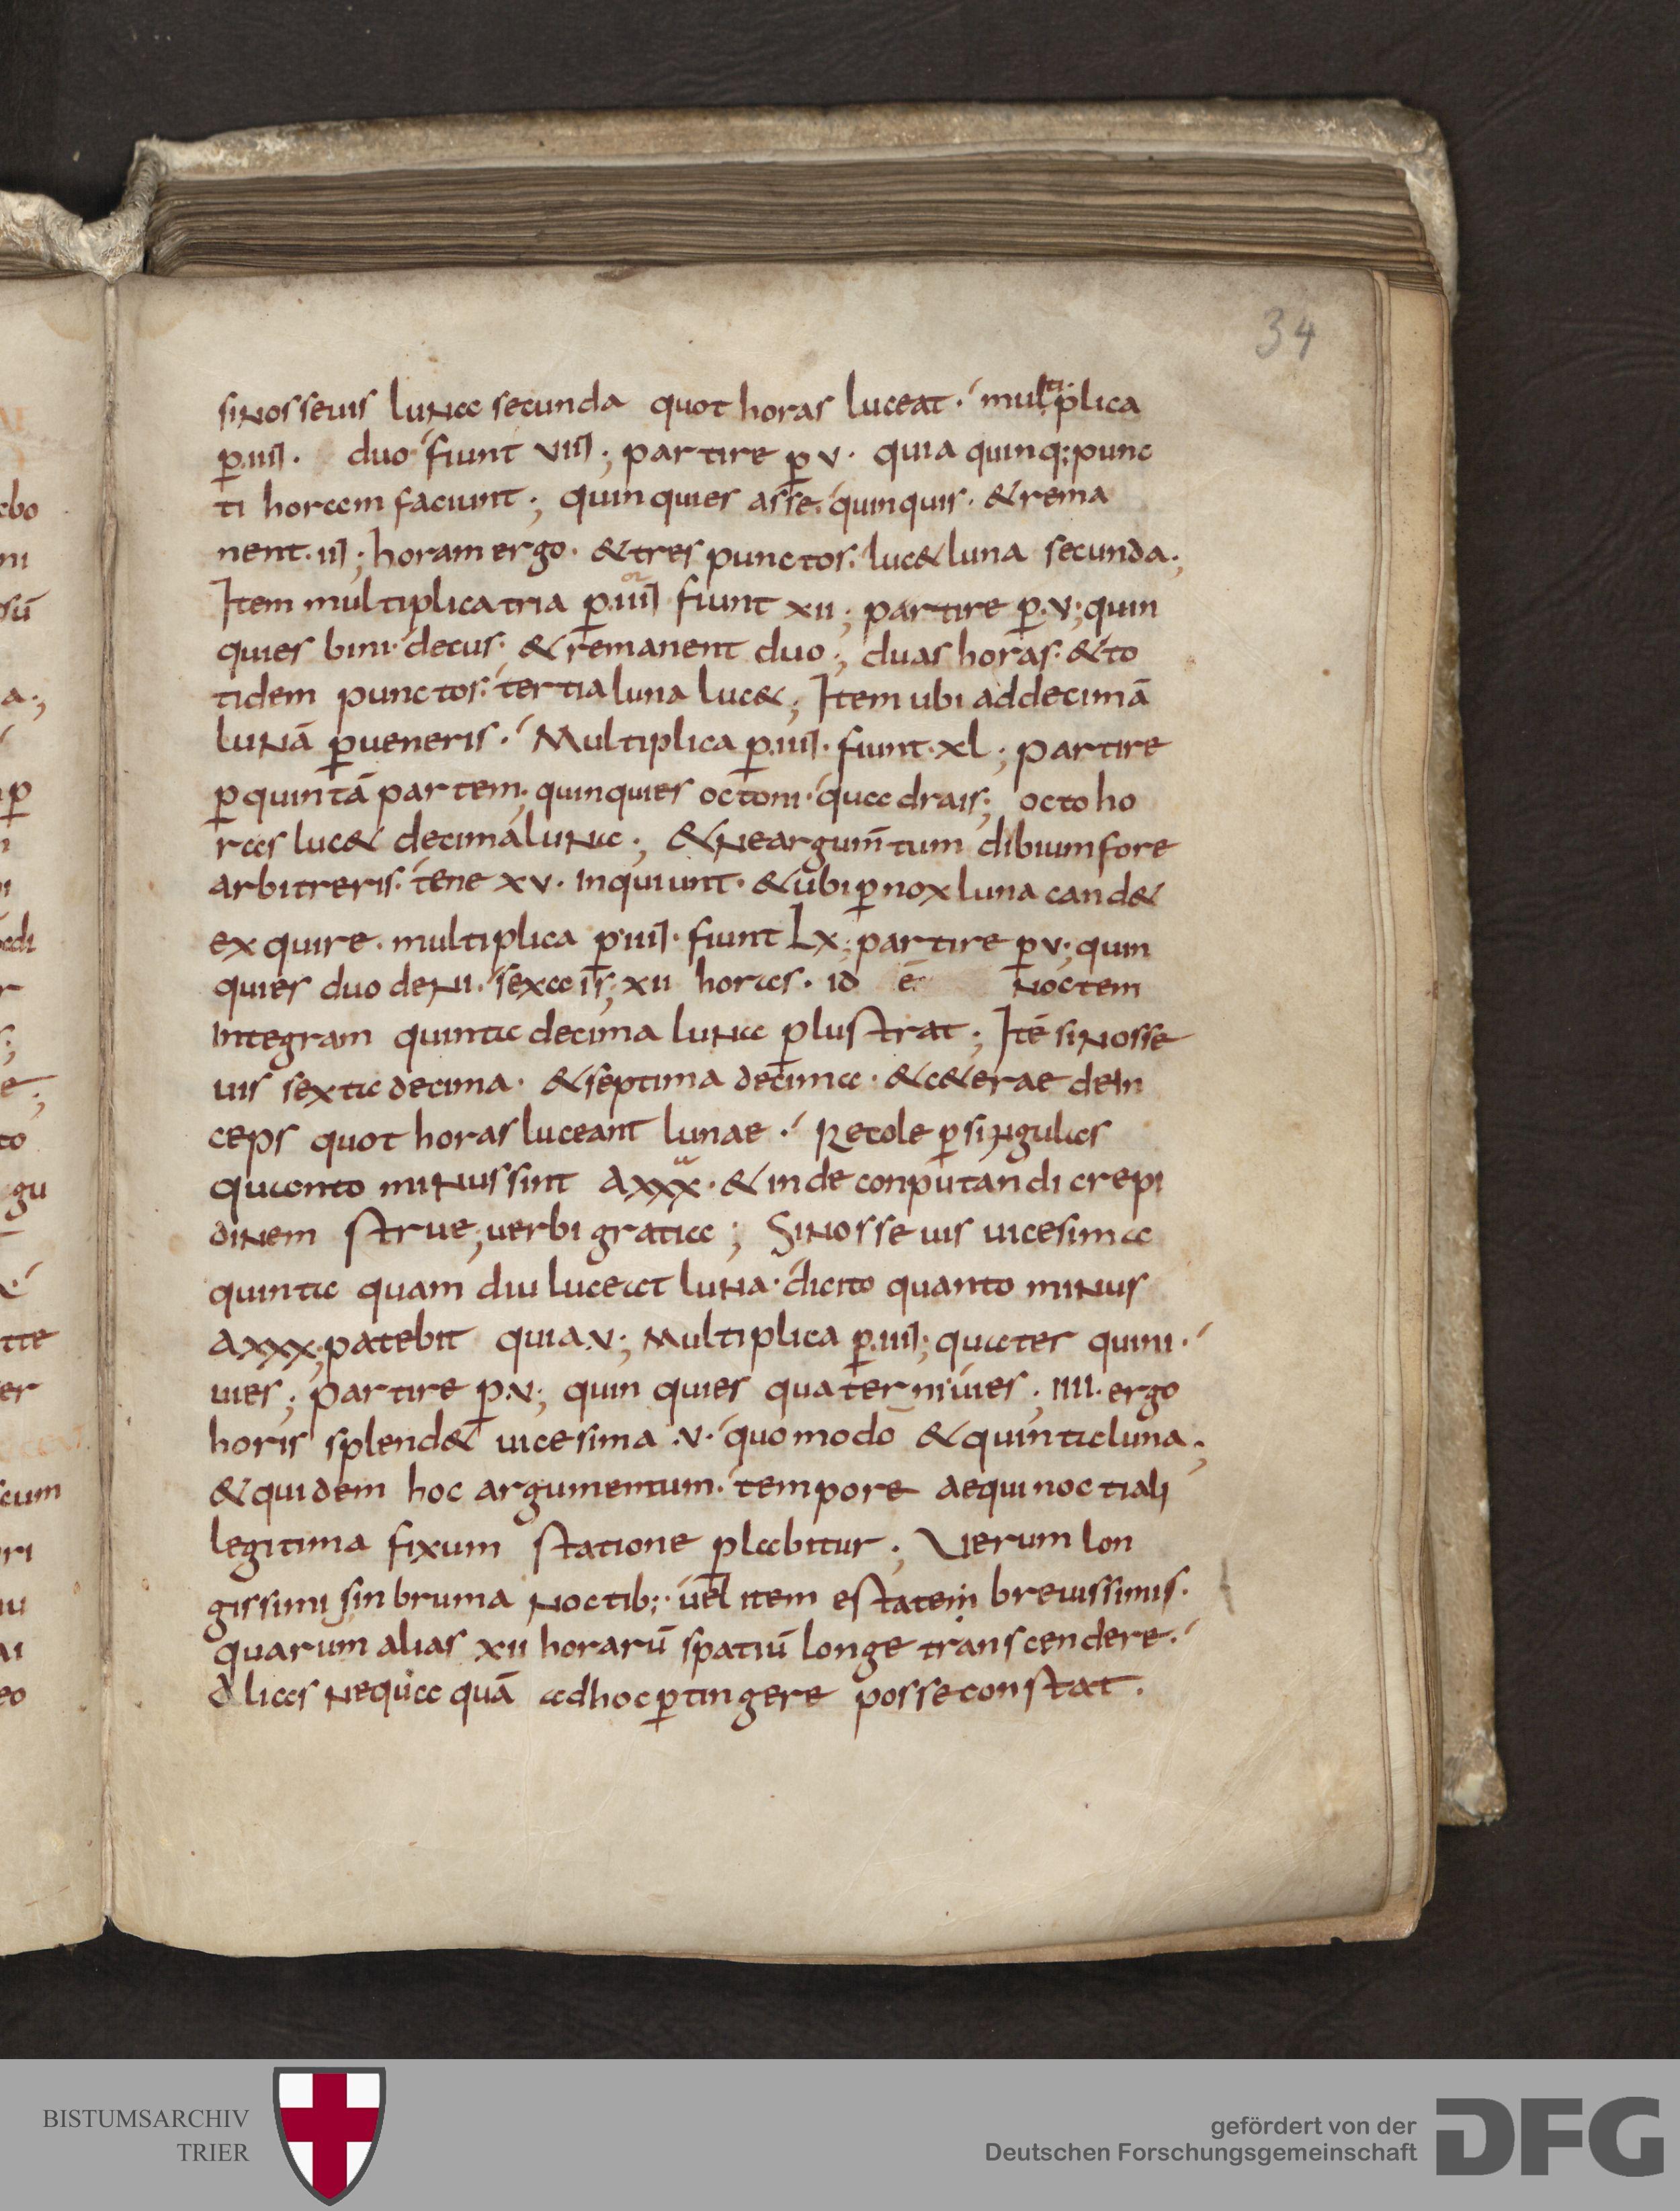 34
si nosse uis luna secunda quot horas luceat · multiplica
p̱ · iiii · duo fiunt viii ; partire p̱ v · quia quinq; punc
ti horam faciunt ; quinquies asse · quinquis · & rema
nent · iii ; horam ergo · & tres punctos · luc& luna secunda ;
Item multiplica tria p̱ · iiii · fiunt xii ; partire p̱ · v ; quin
quies bini · decus · & remanent duo ; duas horas · & to
tidem punctos · tertia luna luc& ; Item ubi ad decimā
lunā p̱ueneris · Multiplica p̱ · iiii · fiunt · xl ; partire
p̱ quintā partem ; quinquies octoni · quadrais ; octo ho
ras luc& decima luna ; & ne argum̄tum dibium fore
arbitreris · tene xv · inquiunt · & ubi p̱nox luna cand&
exquire · multiplica p̱ · iiii · fiunt Lx ; partire p̱ v ; quin
quies duodeni · sexais ; xii horas · id ē noctem
integram quinta decima luna p̱lustrat ; Itē si nosse
uis sexta decima · & septima decima · & c&erae dein
ceps quot horas luceant lunae · Recole p̱ singulas
quanto minus sint A xxx · & inde conputandi crepi
dinem strue ; uerbi gratia ; Si nosse uis uicesima
quinta quam diu luceat luna · dicito quanto minus
A xxx ; patebit quia · v ; Multiplica p̱ · iiii ; quater quini ·
uies ; partire p̱ · v ; quinquies quaterni · uies ; IIII · ergo
horis splend& uicesima · v · quomodo & quinta luna ;
& quidem hoc argumentum · tempore aequinoctiali
legitima fixum statione p̱labitur ; Uerum lon
gissimis in bruma noctib; · uel item estatem breuissimis ·
quarum alias xii horarū spatiū longe transcendere ·
Alias nequa quā ad hoc p̱tingere posse constat ·
BISTUMSARCHIV
TRIER
gefördert von der
Deutschen Forschungsgemeinschaft
DFG